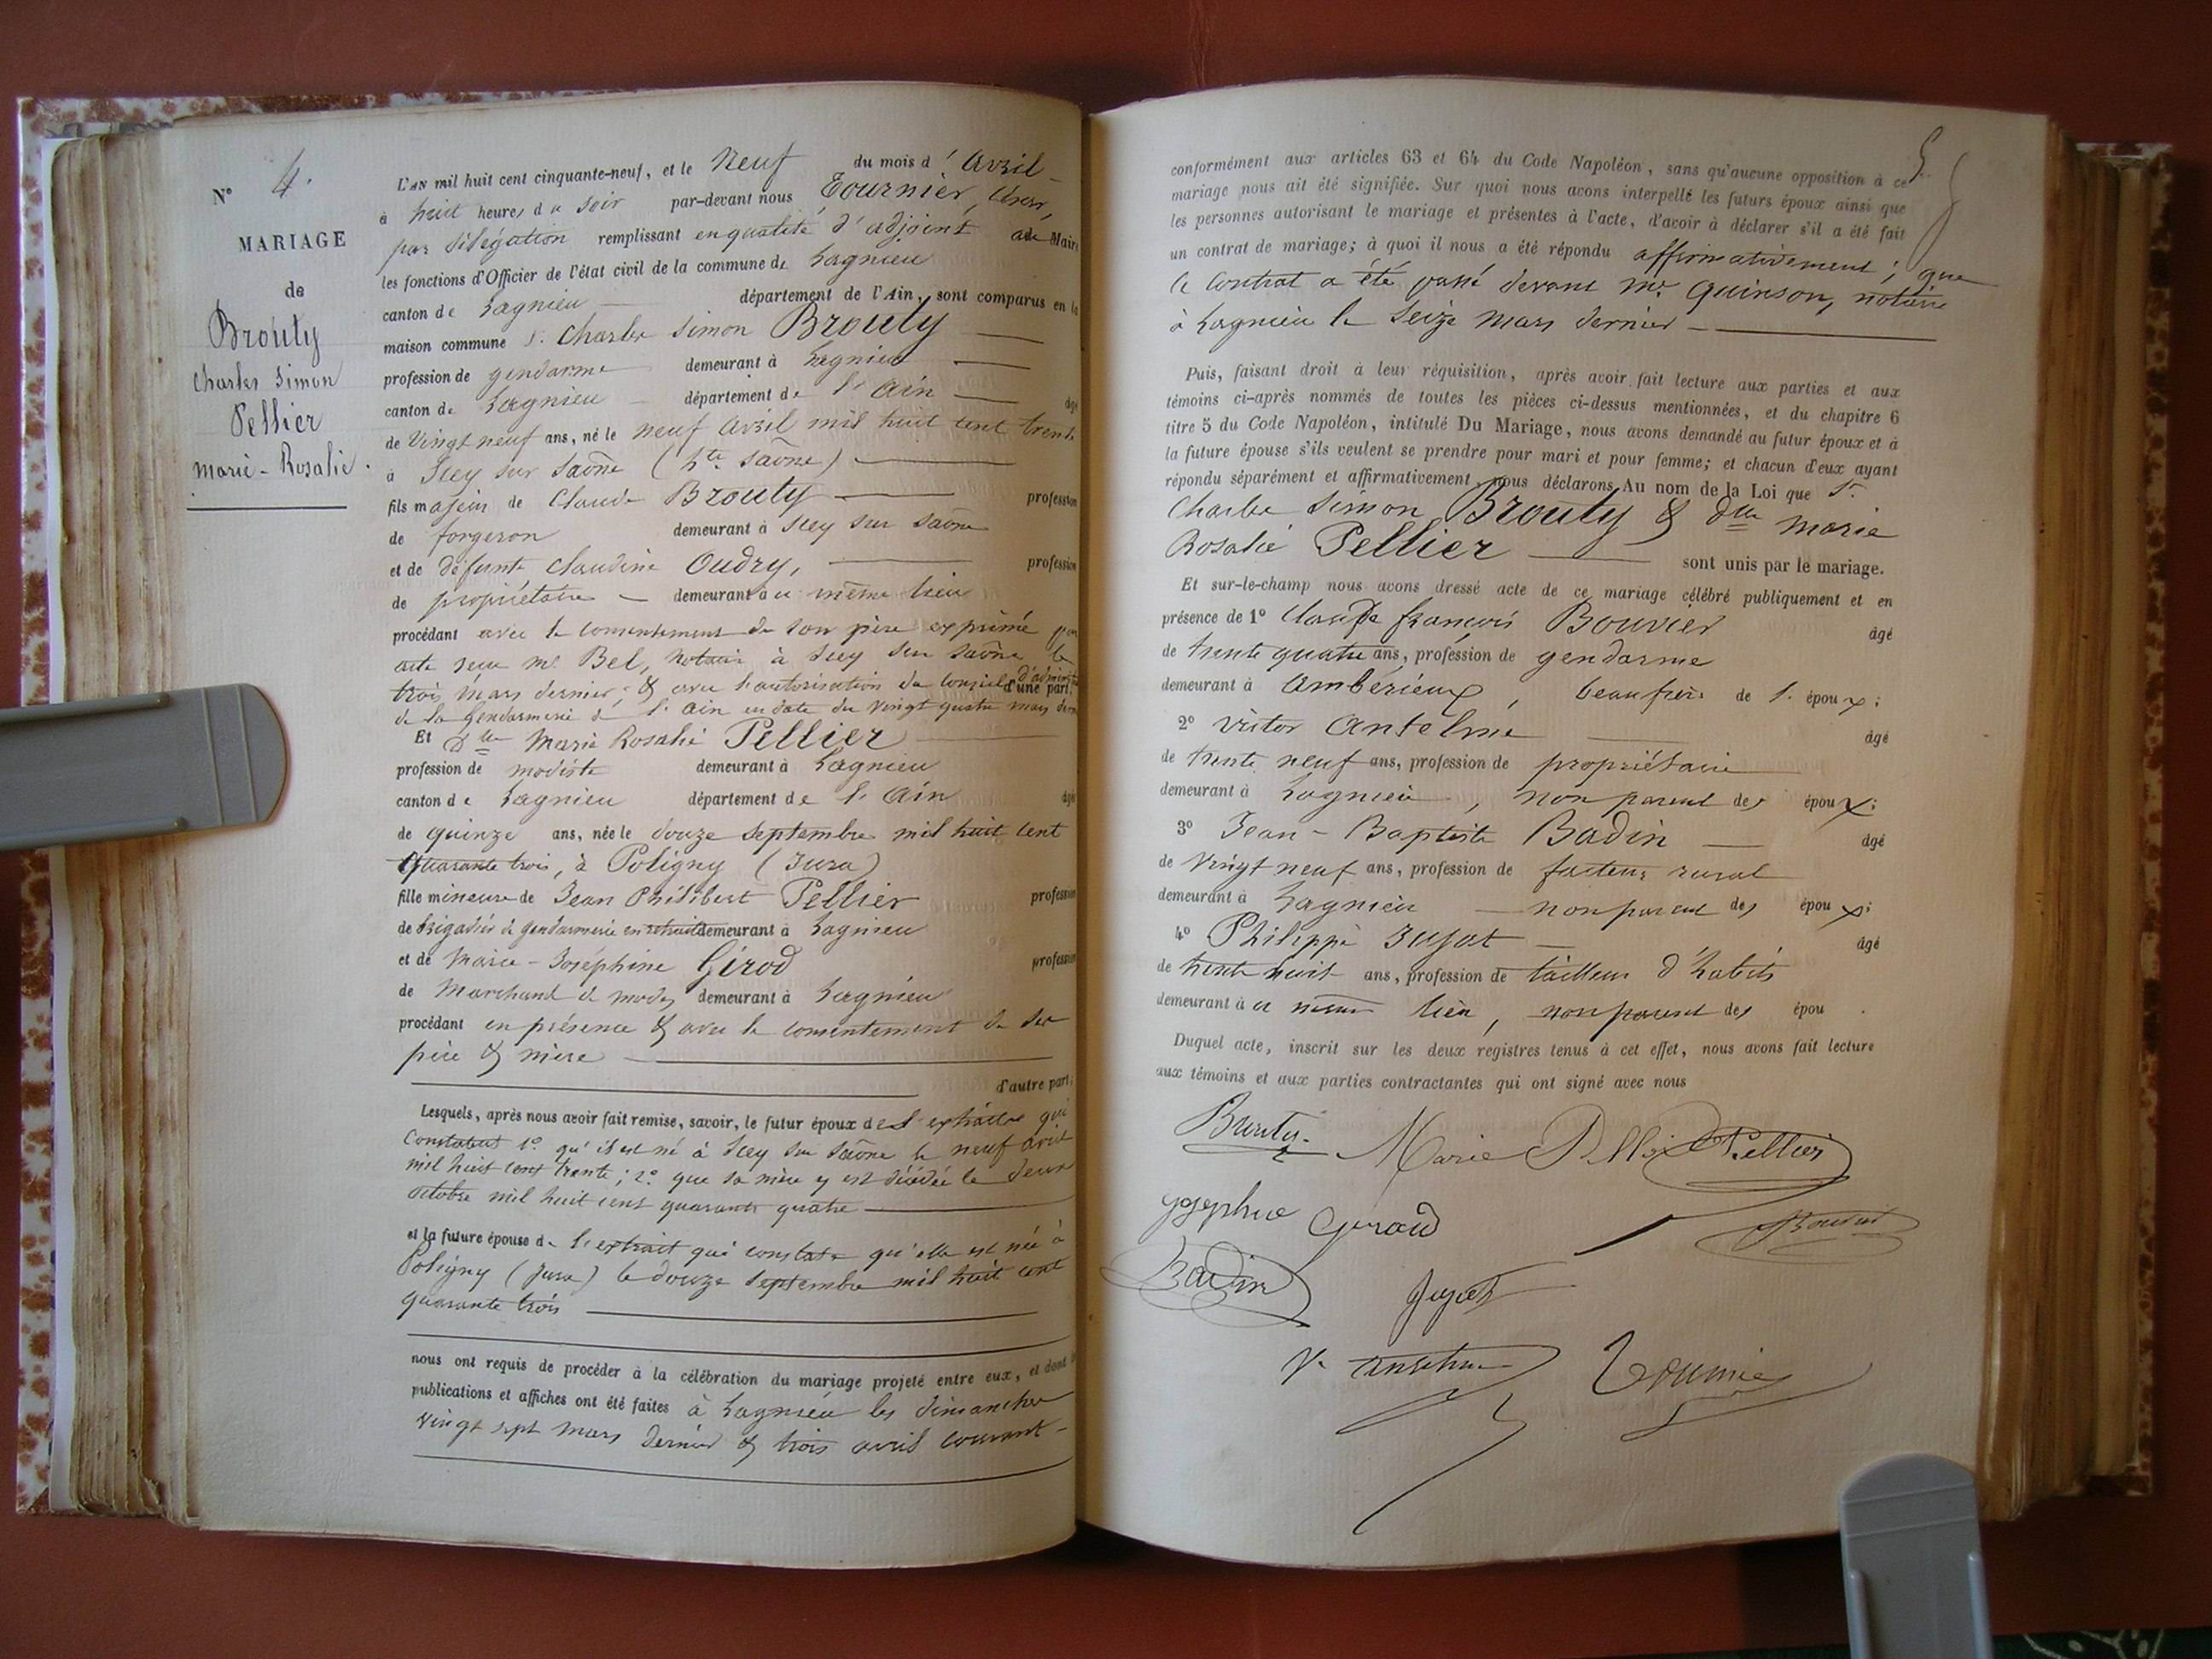 N° 4.
MARIAGE
de
Brouty
Charles Simon
Pellier
Marie-Rosalie.
L'AN mil huit cent cinquante-neuf, et le Neuf du mois d'Avril
à huit heures du Soir par-devant nous Tournier,
par délégation remplissant en qualité d'adjoint au Maire
les fonctions d'Officier de l'état civil de la commune de Lagnieu
canton de Lagnieu département de l'Ain, sont comparus en la
maison commune S. Charles Simon Brouty
profession de gendarme demeurant à Lagnieu
canton de Lagnieu département de l'Ain âgé
de Vingt neuf ans, né le neuf Avril mil huit cent trente
à Scey sur Saône (hte Saône)
fils majeur de Claude Brouty profession
de forgeron demeurant à Scey sur Saône
et de défunte Claudine Oudry, profession
de propriétaire demeurant au même lieu
procédant avec le consentement de son père exprimé par
acte reçu me Bel, notaire à Scey sur Saône le
trois mars dernier; & avec l'autorisation du conseil d'admin d'une part.
de la Gendarmerie de l'Ain en date du vingt quatre mars
Et Dlle Marie Rosalie Pellier
profession de modiste demeurant à Lagnieu
canton de Lagnieu département de l'Ain âgé
de quinze ans, née le douze septembre mil huit cent
quarante trois, à Poligny (Jura)
fille mineure de Jean Philibert Pellier profession
de Brigadier de gendarmerie en retraite demeurant à Lagnieu
et de Marie-Joséphine Girod profession
de Marchand de modes demeurant à Lagnieu
procédant en présence & avec le consentement de ses
père & mère
d'autre part;
Lesquels, après nous avoir fait remise, savoir, le futur époux des extraits qui
constatent 1° qu'il est né à Scey sur Saône le neuf avril
mil huit cent trente; 2° que sa mère y est décédée le deux
octobre mil huit cent quarante quatre
et la future épouse de l'extrait qui constate qu'elle est née à
Poligny (Jura) le douze septembre mil huit cent
quarante trois
nous ont requis de procéder à la célébration du mariage projeté entre eux, et dont les
publications et affiches ont été faites à Lagnieu les dimanches
vingt sept mars dernier & trois avril courant
5.
conformément aux articles 63 et 64 du Code Napoléon, sans qu'aucune opposition à ce
mariage nous ait été signifiée. Sur quoi nous avons interpellé les futurs époux ainsi que
les personnes autorisant le mariage et présentes à l'acte, d'avoir à déclarer s'il a été fait
un contrat de mariage; à quoi il nous a été répondu affirmativement; que
le contrat a été passé devant Me Quinson, notaire
à Lagnieu le seize mars dernier
Puis, faisant droit à leur réquisition, après avoir fait lecture aux parties et aux
témoins ci-après nommés de toutes les pièces ci-dessus mentionnées, et du chapitre 6
titre 5 du Code Napoléon, intitulé Du Mariage, nous avons demandé au futur époux et à
la future épouse s'ils veulent se prendre pour mari et pour femme; et chacun d'eux ayant
répondu séparément et affirmativement, nous déclarons Au nom de la Loi que S.
Charles Simon Brouty & dlle Marie
Rosalie Pellier sont unis par le mariage.
Et sur-le-champ nous avons dressé acte de ce mariage célébré publiquement et en
présence de 1° Claude françois Bouvier âgé
de trente quatre ans, profession de gendarme
demeurant à Ambérieux, beaufrère de l'époux;
2° Victor Antelme âgé
de trente neuf ans, profession de propriétaire
demeurant à Lagnieu, non parent des époux;
3° Jean-Baptiste Badin âgé
de Vingt neuf ans, profession de facteur rural
demeurant à Lagnieu non parent des époux;
4° Philippe Jujat âgé
de trente huit ans, profession de tailleur d'habits
demeurant à ce même lieu, non parent des épou .
Duquel acte, inscrit sur les deux registres tenus à cet effet, nous avons fait lecture
aux témoins et aux parties contractantes qui ont signé avec nous
Brouty Marie Pellier Pellier
Josephine Geraud Bouvier
Badin Jujat
V. Antelme Tournier